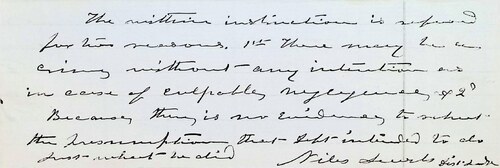 The within instruction is refused
for two reasons. 1st There may be a
crime without any intention as
in case of culpable neglegence, & 2d
Because there is no Evidence to rebut
the presumption that Deft intended to do
just what he did
Niles Searls Dist Judge